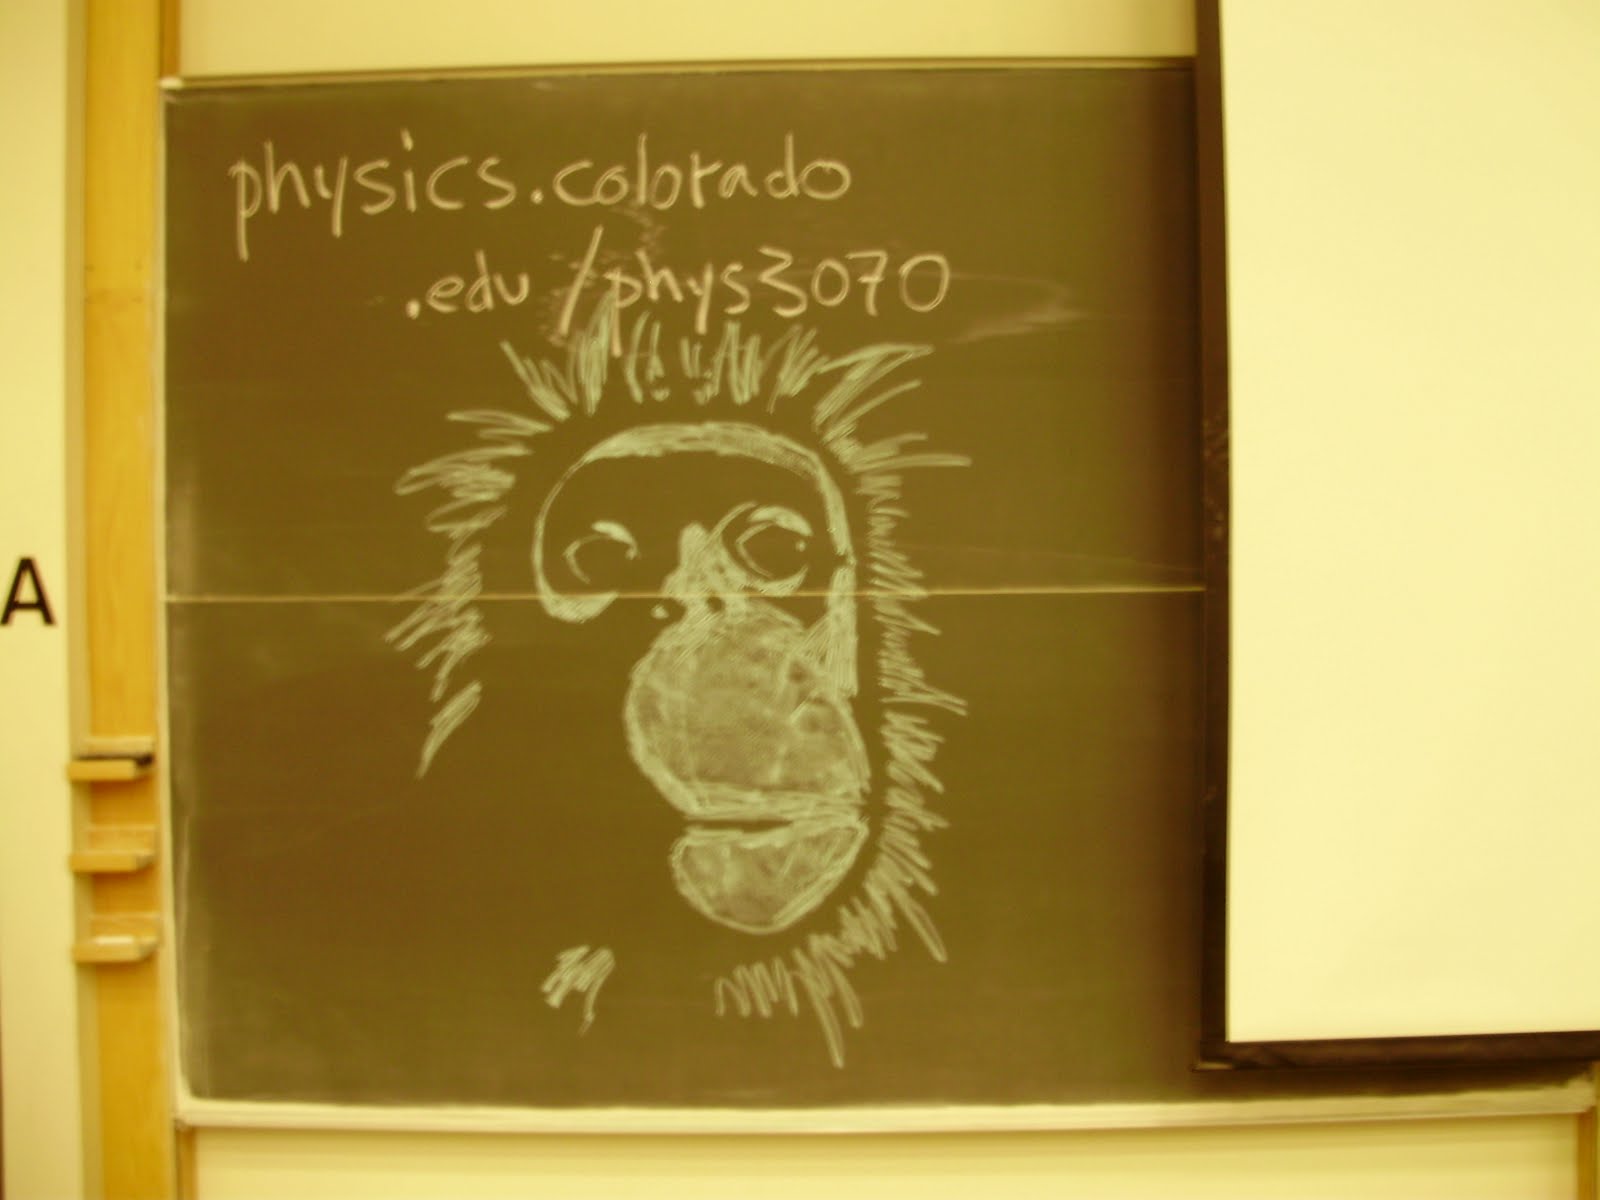 physics.colorado
.edu/phys3070
A